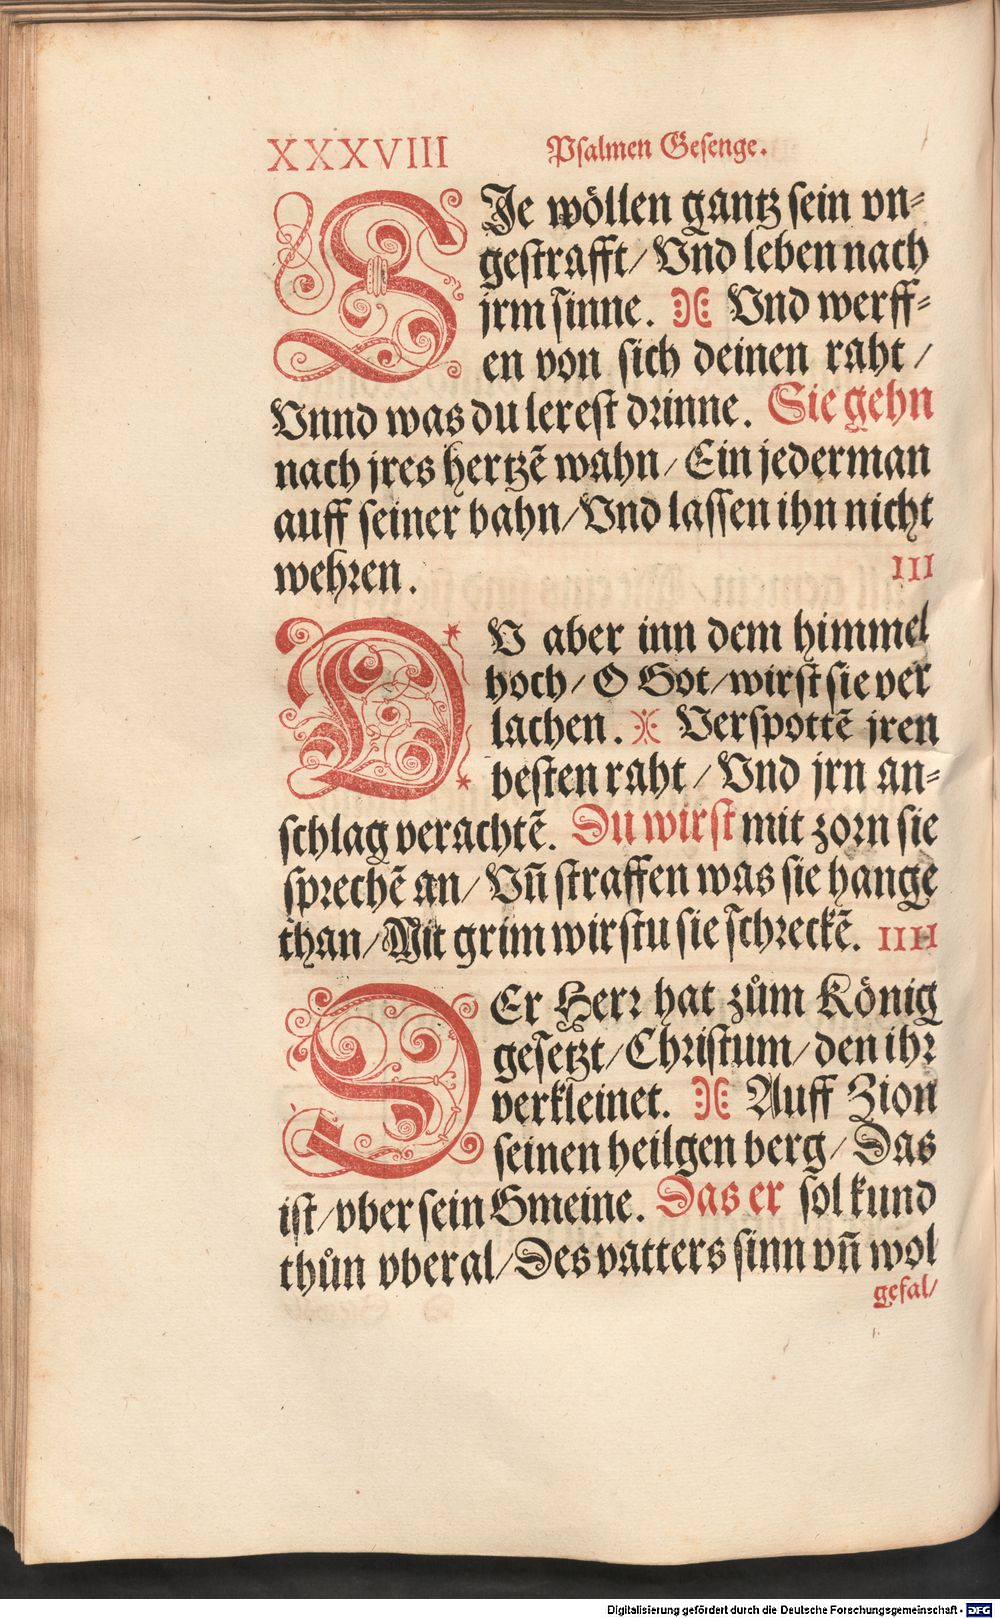 XXXVIII Psalmen Gesenge.
SJe wöllen gantz sein vn-
gestrafft/ Vnd leben nach
jrm sinne. Vnd werff-
en von sich deinen raht/
Vnnd was du lerest drinne. Sie gehn
nach jres hertzē wahn/ Ein jederman
auff seiner bahn/ Vnd lassen ihn nicht
wehren. III
DV aber inn dem himmel
hoch/ O Got/ wirst sie ver
lachen. Verspottē jren
besten raht/ Vnd jrn an-
schlag verachtē. Du wirst mit zorn sie
sprechē an/ Vn̄ straffen was sie han ge
than/ Mit grim wirstu sie schreckē. IIII
DEr Herr hat zům König
gesetzt/ Christum/ den ihr
verkleinet. Auff Zion
seinen heilgen berg/ Das
ist/ vber sein Gmeine. Das er sol kund
thůn vberal/ Des vatters sinn vn̄ wol
gefal/
Digitalisierung gefördert durch die Deutsche Forschungsgemeinschaft - DFG